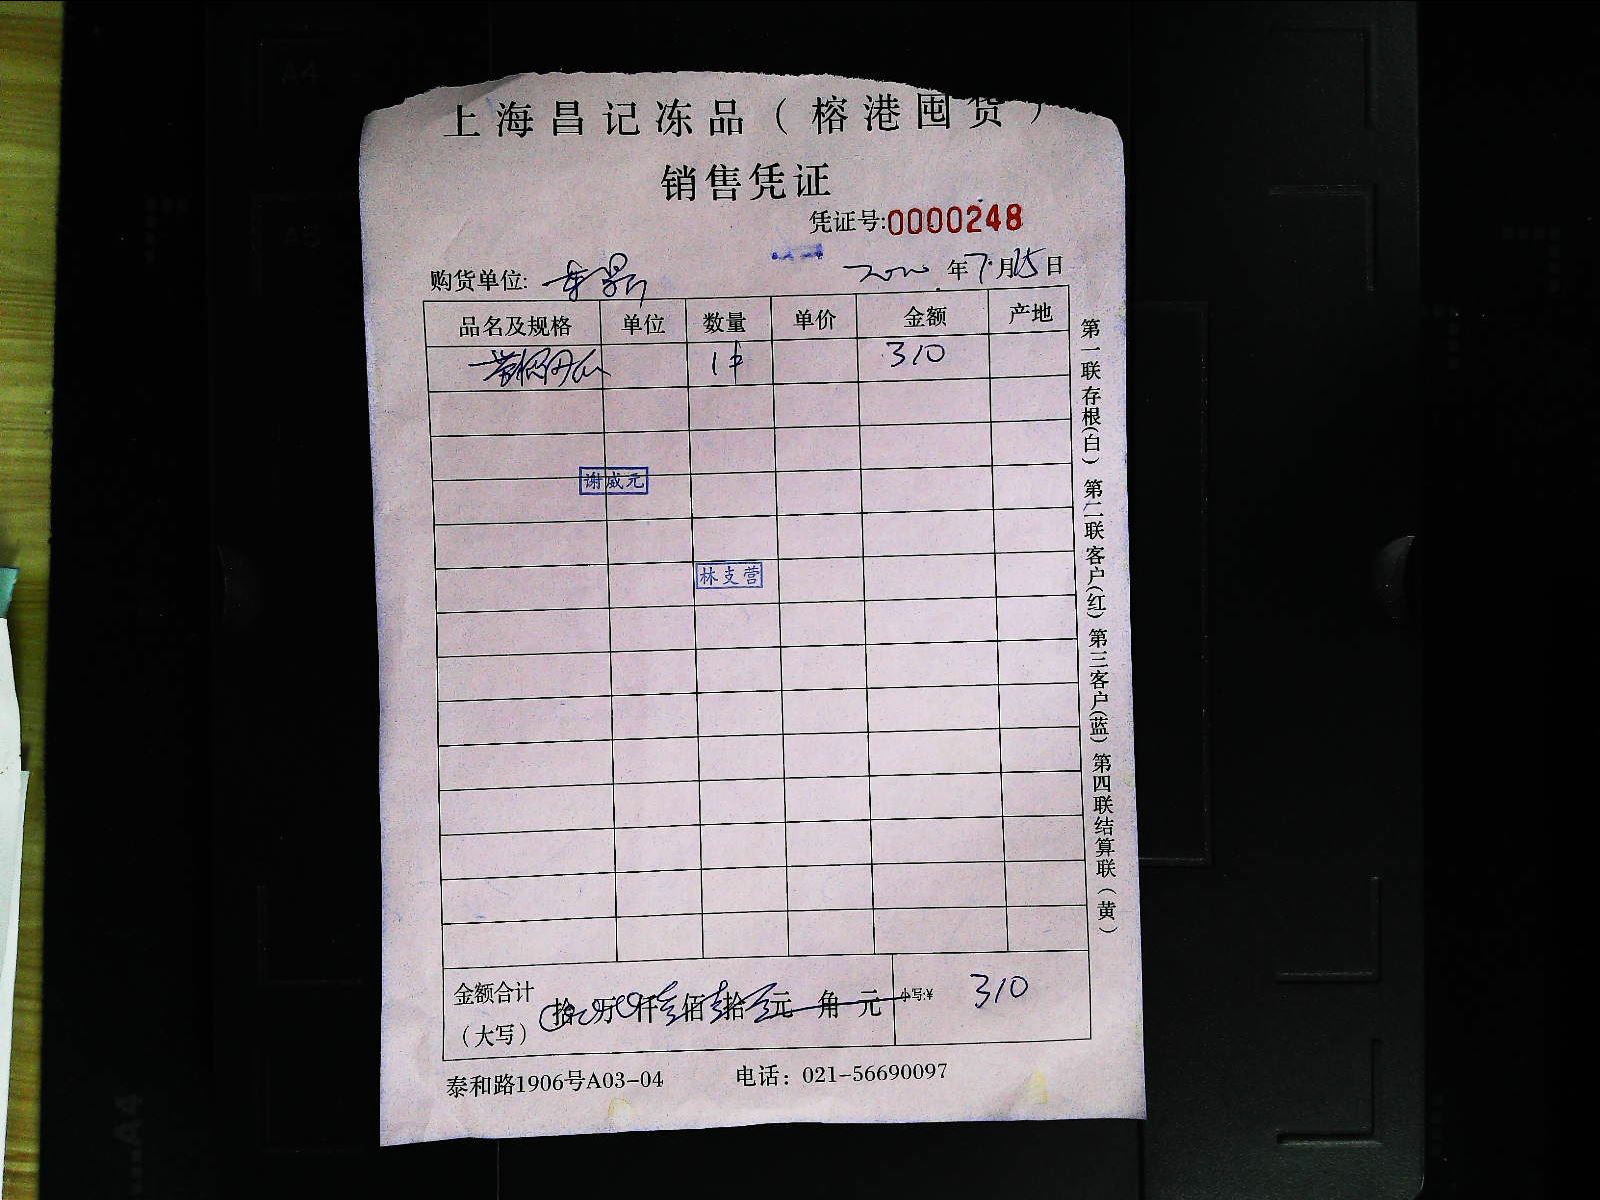 上海昌记冻品（榕港囤货）
销售凭证
凭证号:0000248
购货单位: 2020年7月15日
品名及规格 单位 数量 单价 金额 产地
1件 310
谢威元
林支营
金额合计
（大写） 拾 万 仟 佰 拾 元 角 元 小写:¥ 310
泰和路1906号A03-04 电话：021-56690097
第一联存根(白) 第二联客户(红) 第三客户(蓝) 第四联结算联(黄)